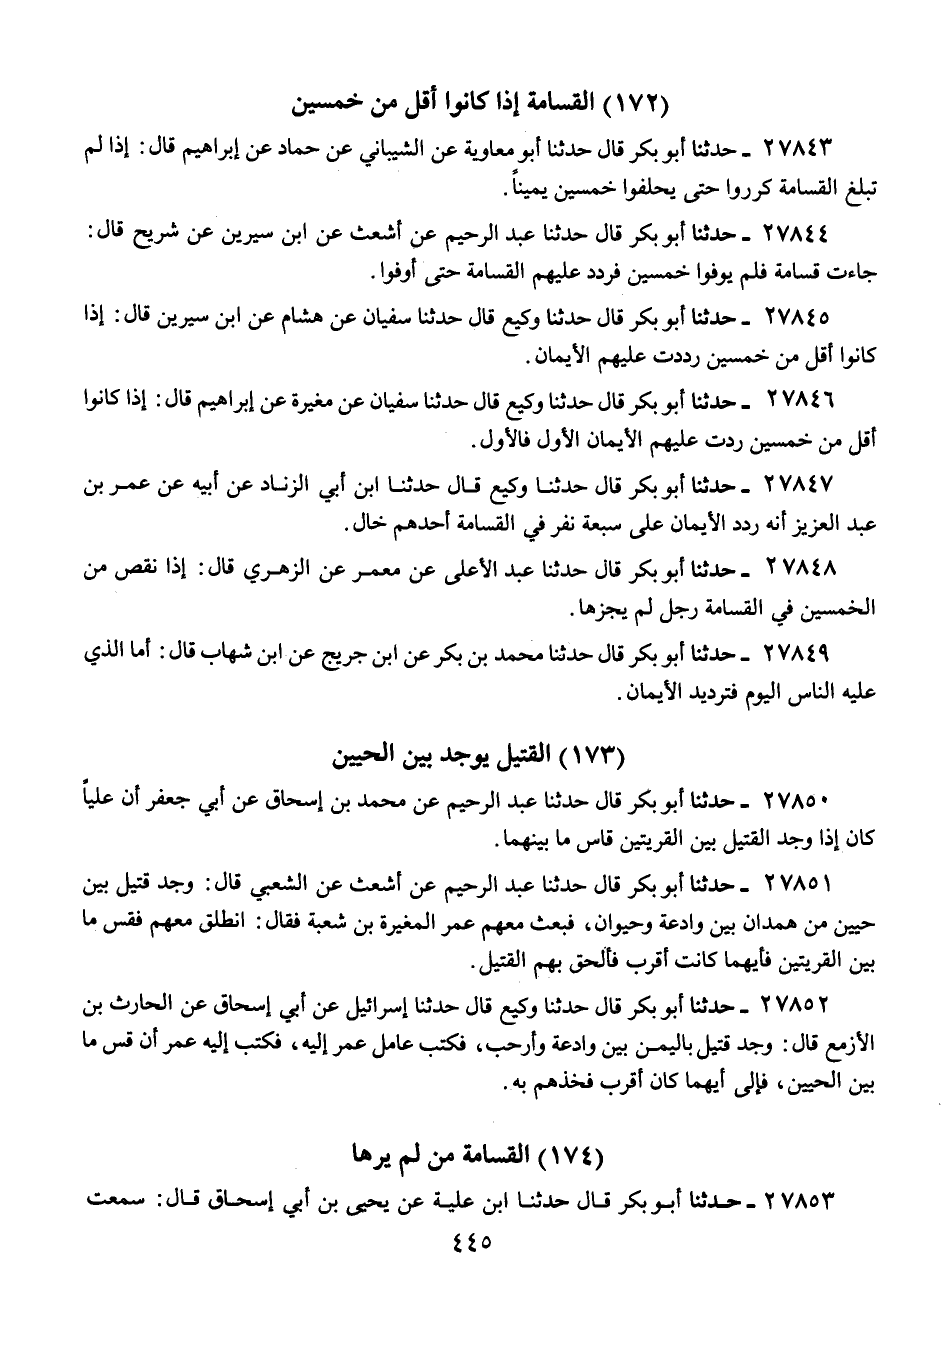 (١٧٢) القسامة إذا كانوا أقل من خمسين
٢٧٨٤٣ ـ حدثنا أبو بكر قال حدثنا أبو معاوية عن الشيباني عن حماد عن إبراهيم قال: إذا لم
تبلغ القسامة كرروا حتى يحلفوا خمسين يميناً.
٢٧٨٤٤ ـ حدثنا أبو بكر قال حدثنا عبد الرحيم عن أشعث عن ابن سيرين عن شريح قال:
جاءت قسامة فلم يوفوا خمسين فردد عليهم القسامة حتى أوفوا.
٢٧٨٤٥ ـ حدثنا أبو بكر قال حدثنا وكيع قال حدثنا سفيان عن هشام عن ابن سيرين قال: إذا
كانوا أقل من خمسين رددت عليهم الأيمان.
٢٧٨٤٦ ـ حدثنا أبو بكر قال حدثنا وكيع قال حدثنا سفيان عن مغيرة عن إبراهيم قال: إذا كانوا
أقل من خمسين ردت عليهم الأيمان الأول فالأول.
٢٧٨٤٧ ـ حدثنا أبو بكر قال حدثنا وكيع قال حدثنا ابن أبي الزناد عن أبيه عن عمر بن
عبد العزيز أنه ردد الأيمان على سبعة نفر في القسامة أحدهم خال.
٢٧٨٤٨ ـ حدثنا أبو بكر قال حدثنا عبد الأعلى عن معمر عن الزهري قال: إذا نقص من
الخمسين في القسامة رجل لم يجزها.
٢٧٨٤٩ ـ حدثنا أبو بكر قال حدثنا محمد بن بكر عن ابن جريج عن ابن شهاب قال: أما الذي
عليه الناس اليوم فترديد الأيمان.
(١٧٣) القتيل يوجد بين الحيين
٢٧٨٥٠ ـ حدثنا أبو بكر قال حدثنا عبد الرحيم عن محمد بن إسحاق عن أبي جعفر أن علياً
كان إذا وجد القتيل بين القريتين قاس ما بينهما.
٢٧٨٥١ ـ حدثنا أبو بكر قال حدثنا عبد الرحيم عن أشعث عن الشعبي قال: وجد قتيل بين
حيين من همدان بين وادعة وحيوان، فبعث معهم عمر المغيرة بن شعبة فقال: انطلق معهم فقس ما
بين القريتين فأيهما كانت أقرب فألحق بهم القتيل.
٢٧٨٥٢ ـ حدثنا أبو بكر قال حدثنا وكيع قال حدثنا إسرائيل عن أبي إسحاق عن الحارث بن
الأزمع قال: وجد قتيل باليمن بين وادعة وأرحب، فكتب عامل عمر إليه، فكتب إليه عمر أن قس ما
بين الحيين، فإلى أيهما كان أقرب فخذهم به.
(١٧٤) القسامة من لم يرها
٢٧٨٥٣ ـ حدثنا أبو بكر قال حدثنا ابن علية عن يحيى بن أبي إسحاق قال: سمعت
٤٤٥